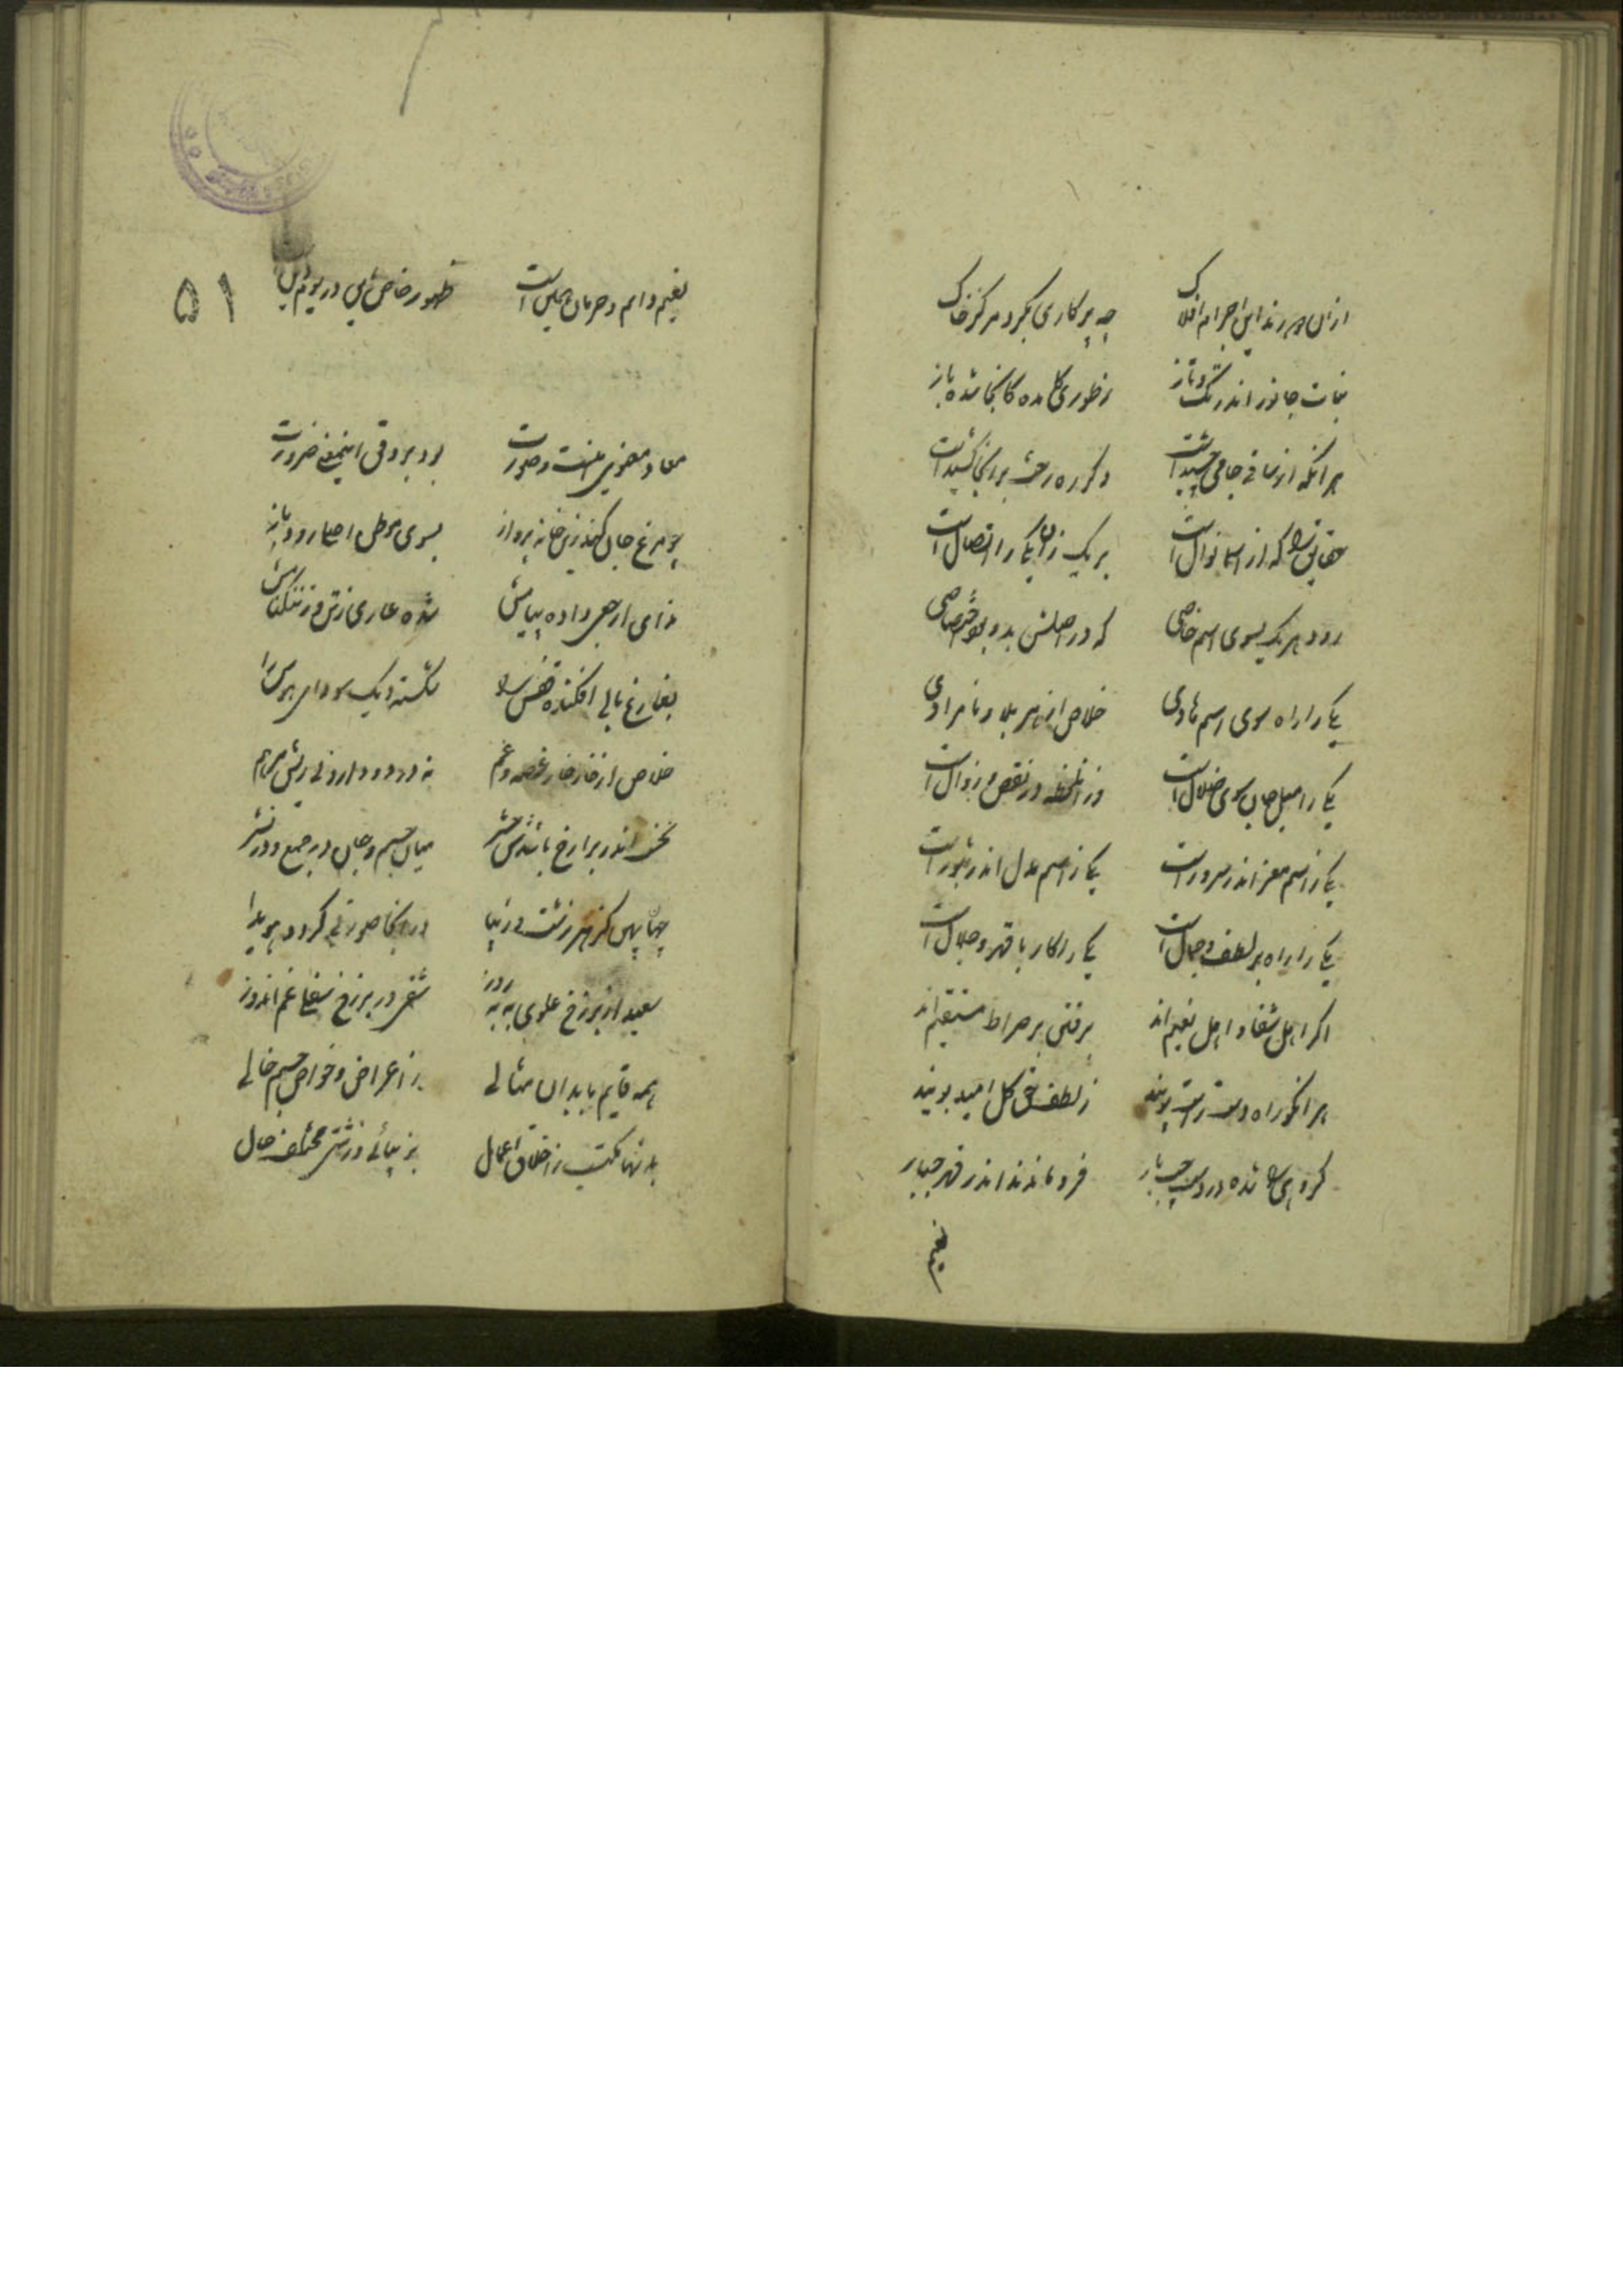 ازان در رند این اجرام افلاک چه پرکاری بگرد مرکز خاک
نبات جانور اندر تک و تاز ز طوری کامده کانجا شده باز
هر آنکه از ساقی جامی چشیدست دگر ره رخت بر آنجا کشیدست
حقایق را که از اسما نوال است بر یک زان یکی را اتصال است
رود هر یک بسوی اسم خاصی که در اصلش بدو بود اختصاصی
یکی را راه سوی اسم هادی خلاص از هر بلا و نامرادی
یکی را میل جان سوی ضلال است در نقص و زوال است
یکی ز اسم معز اندر سرور است یکی ز اسم مذل اندر ثبور است
یکی را راه بر لطف و جمال است یکی را کار با قهر و جلال است
اگر اهل شقا و اهل نعیم اند برفتن بر صراط مستقیم اند
هر آنکو راه دست راست پویند ز لطف حق گل امید بویند
گروهی را شده در دست چپ بار فرو ماندند اندر قهر جبار
نعیم
نعیم دایم و حرمان جحیم است ظهور خاص در یوم
۵۱
معاد معنوی است و صورت بود بر وفق این معنی ضرورت
چو مرغ جان کند زین خانه پرواز بسوی موطن اصلی رود باز
ندای ارجعی داده پیامش شده عاری ز تن وز ننگ و نامش
بفارغ بالی افکنده قفس را شکسته دیک سودای هوس را
خلاص از خار خار غصه و غم نه درد و دارو نی ریش مرهم
نخست اندر برازخ باشدش حشر میان جسم و جان در جمع و در نشر
چنان پس کز هنر زشت و زیبا در آنجا صورتی گردد هویدا
سعید از برزخ علوی به بهروز شقی در برزخ سفلی غم اندوز
همه قایم بابدان مثالی ز اعراض و خواص جسم خالی
بدنها مکتسب ز اخلاق و اعمال بزیبائی و زشتی مختلف حال